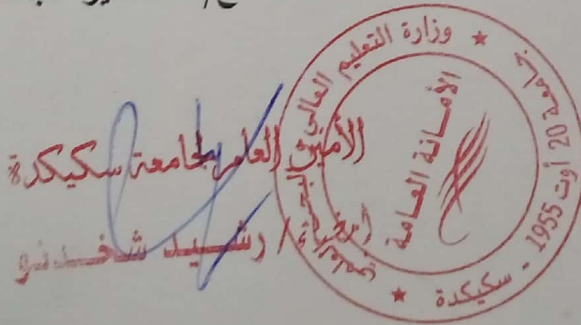 الأمين العام لجامعة سكيكدة
رشيد شافدنو
وزارة التعليم العالي و البحث
جامعة 20 أوت 1955 - سكيكدة
الأمانة العامة